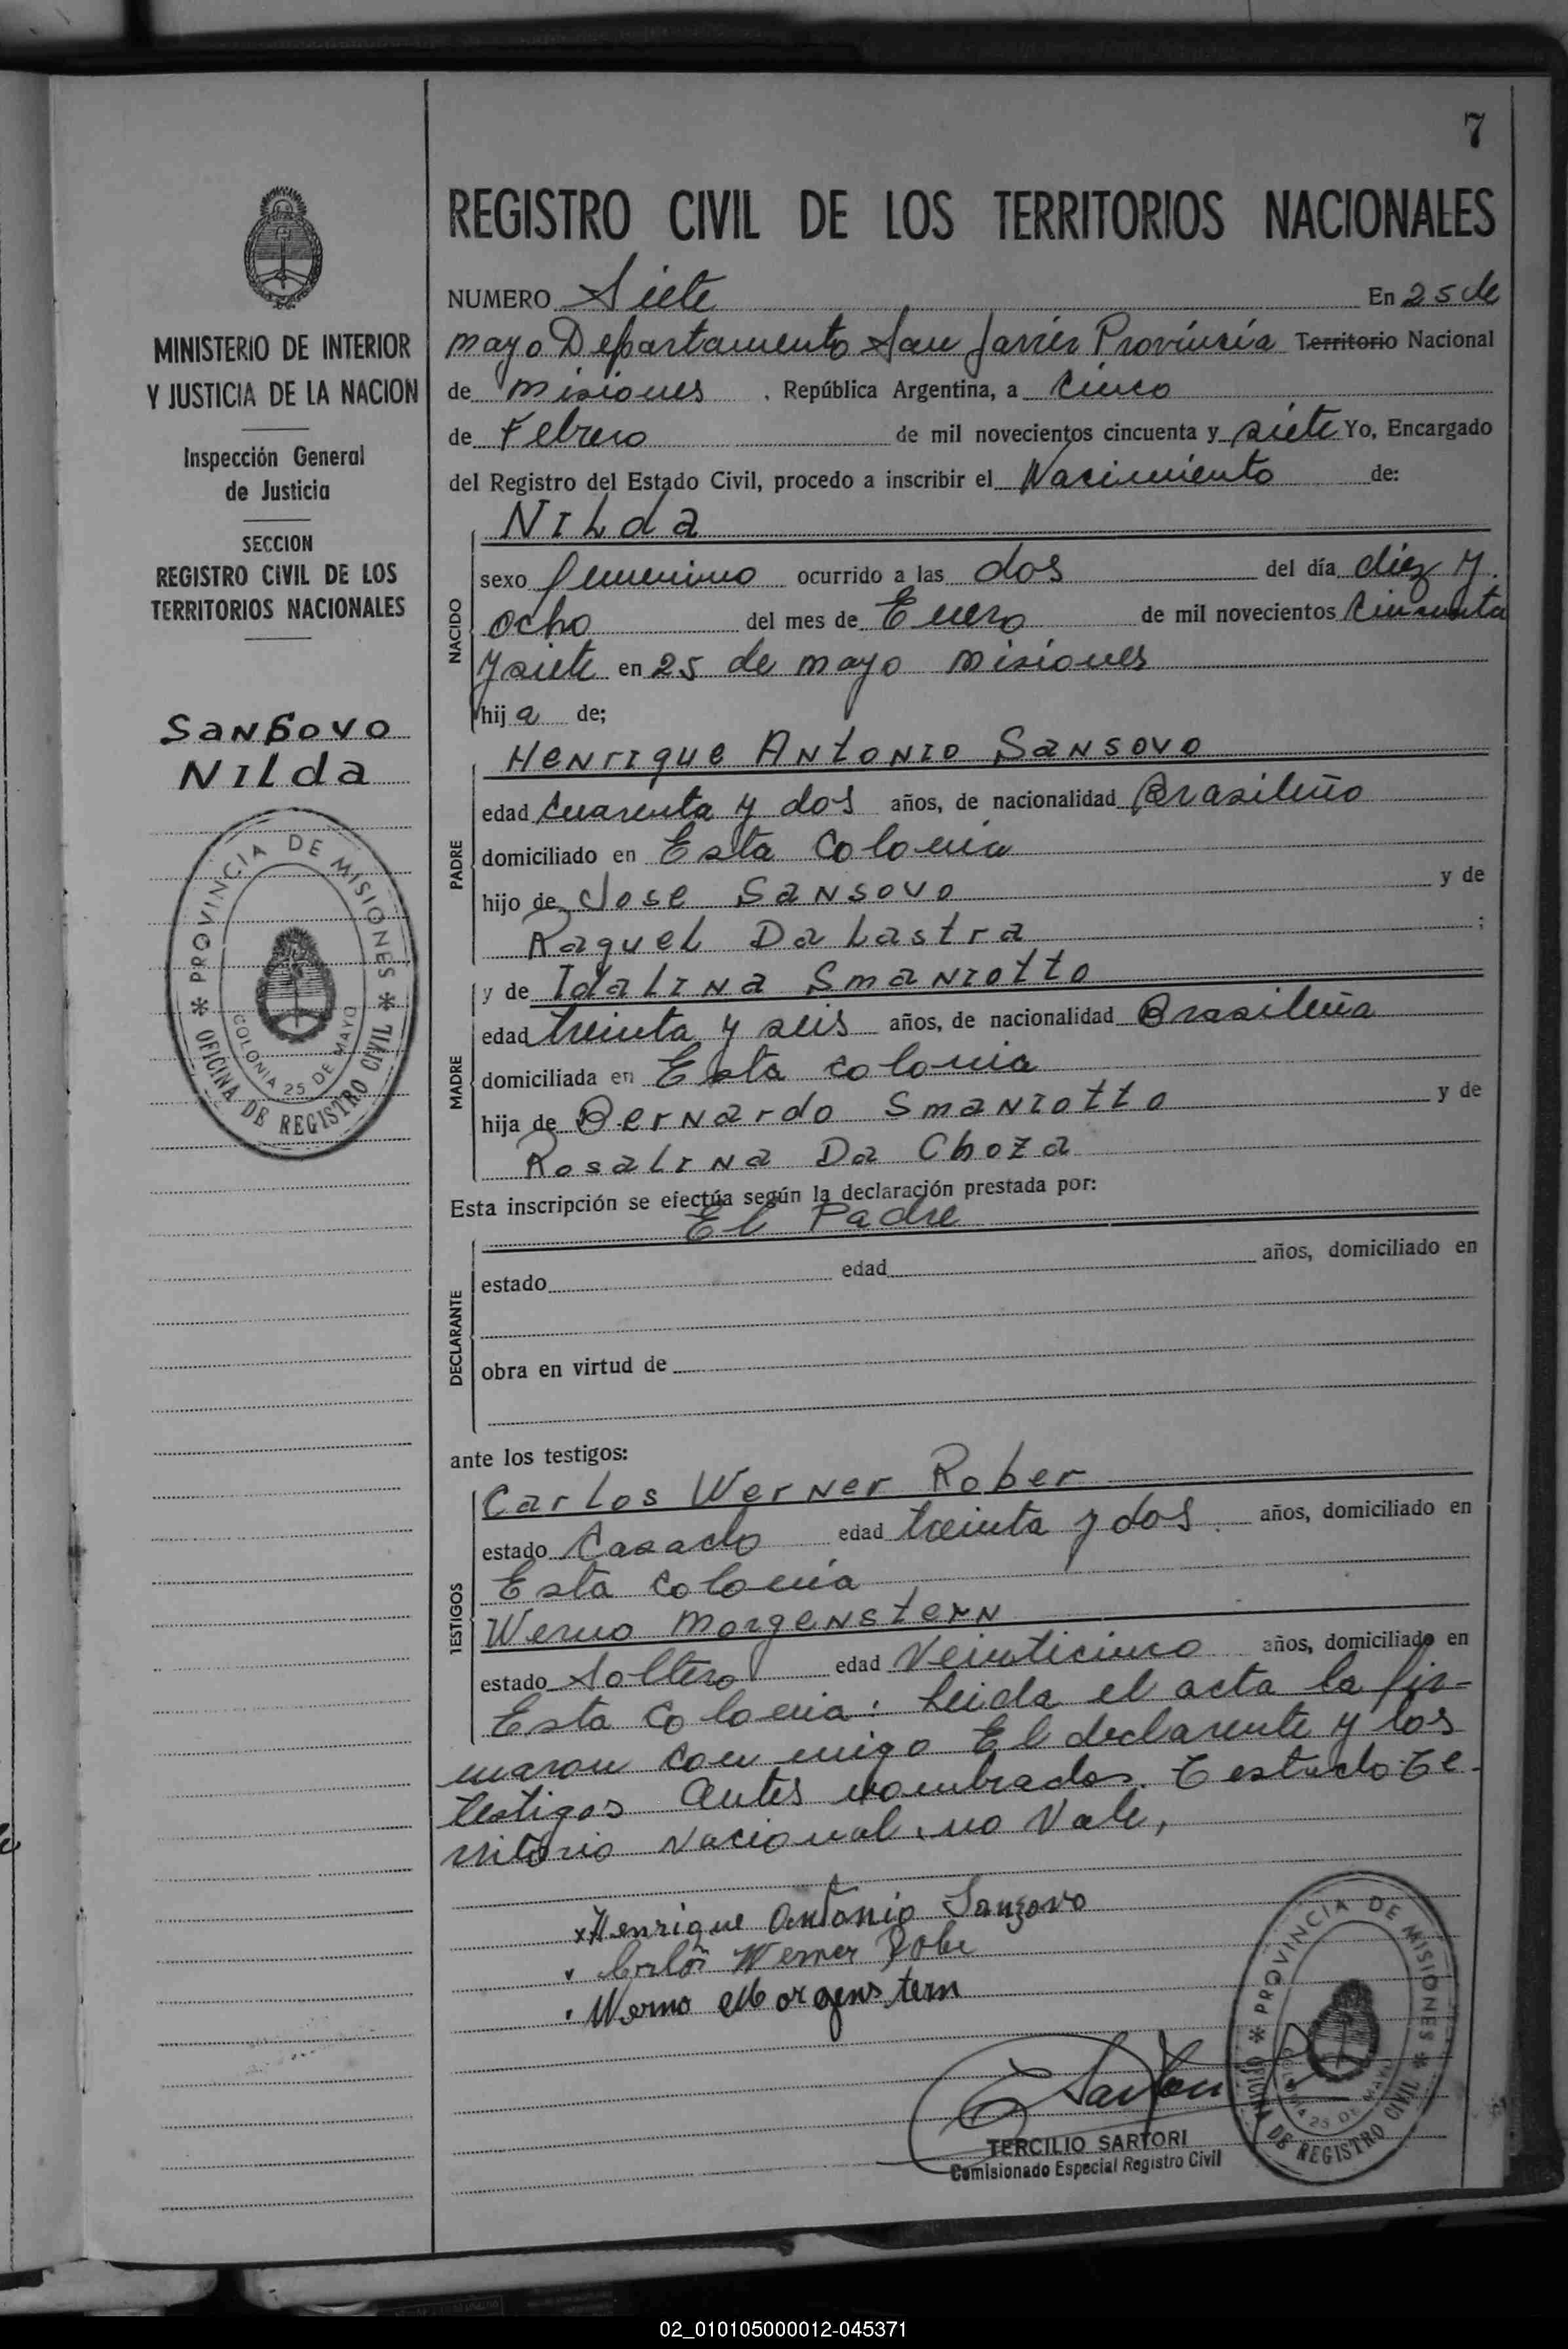 7
REGISTRO CIVIL DE LOS TERRITORIOS NACIONALES
MINISTERIO DE INTERIOR
Y JUSTICIA DE LA NACION
Inspección General
de Justicia
SECCION
REGISTRO CIVIL DE LOS
TERRITORIOS NACIONALES
Sansovo
Nilda
PROVINCIA DE MISIONES
OFICINA DE REGISTRO CIVIL
COLONIA 25 DE MAYO
NUMERO Siete En 25 de
mayo Departamento San Javier Provincia Territorio Nacional
de Misiones . República Argentina, a Cinco
de Febrero de mil novecientos cincuenta y siete Yo, Encargado
del Registro del Estado Civil, procedo a inscribir el Nacimiento de:
NACIDO
Nilda
sexo femenino ocurrido a las dos del día diez y
ocho del mes de Enero de mil novecientos Cincuenta
y siete en 25 de mayo Misiones
hij a de;
PADRE
Henrique Antonio Sansovo
edad Cuarenta y dos años, de nacionalidad Brasileño
domiciliado en Esta Colonia
hijo de Jose Sansovo y de
Raquel Da Lastra ;
MADRE
y de Idalina Smaniotto
edad treinta y seis años, de nacionalidad Brasileña
domiciliada en Esta colonia
hija de Bernardo Smaniotto y de
Rosalina Da Choza
Esta inscripción se efectúa según la declaración prestada por:
El Padre
DECLARANTE
estado edad años, domiciliado en
obra en virtud de
ante los testigos:
TESTIGOS
Carlos Werner Rober
estado Casado edad treinta y dos años, domiciliado en
Esta colonia
Werno Morgenstern
estado Soltero edad Veinticinco años, domiciliado en
Esta Colonia: Leida el acta la fir-
maron con migo El declarente y los
testigos Antes nombrados. Testado Te-
rritorio Nacional, no Vale,
x Henrique Antonio Sanzovo
Carlos Werner Robe
Werno Morgenstern
Sartori
TERCILIO SARTORI
Comisionado Especial Registro Civil
PROVINCIA DE MISIONES
OFICINA DE REGISTRO CIVIL
COLONIA 25 DE MAYO
02_010105000012-045371